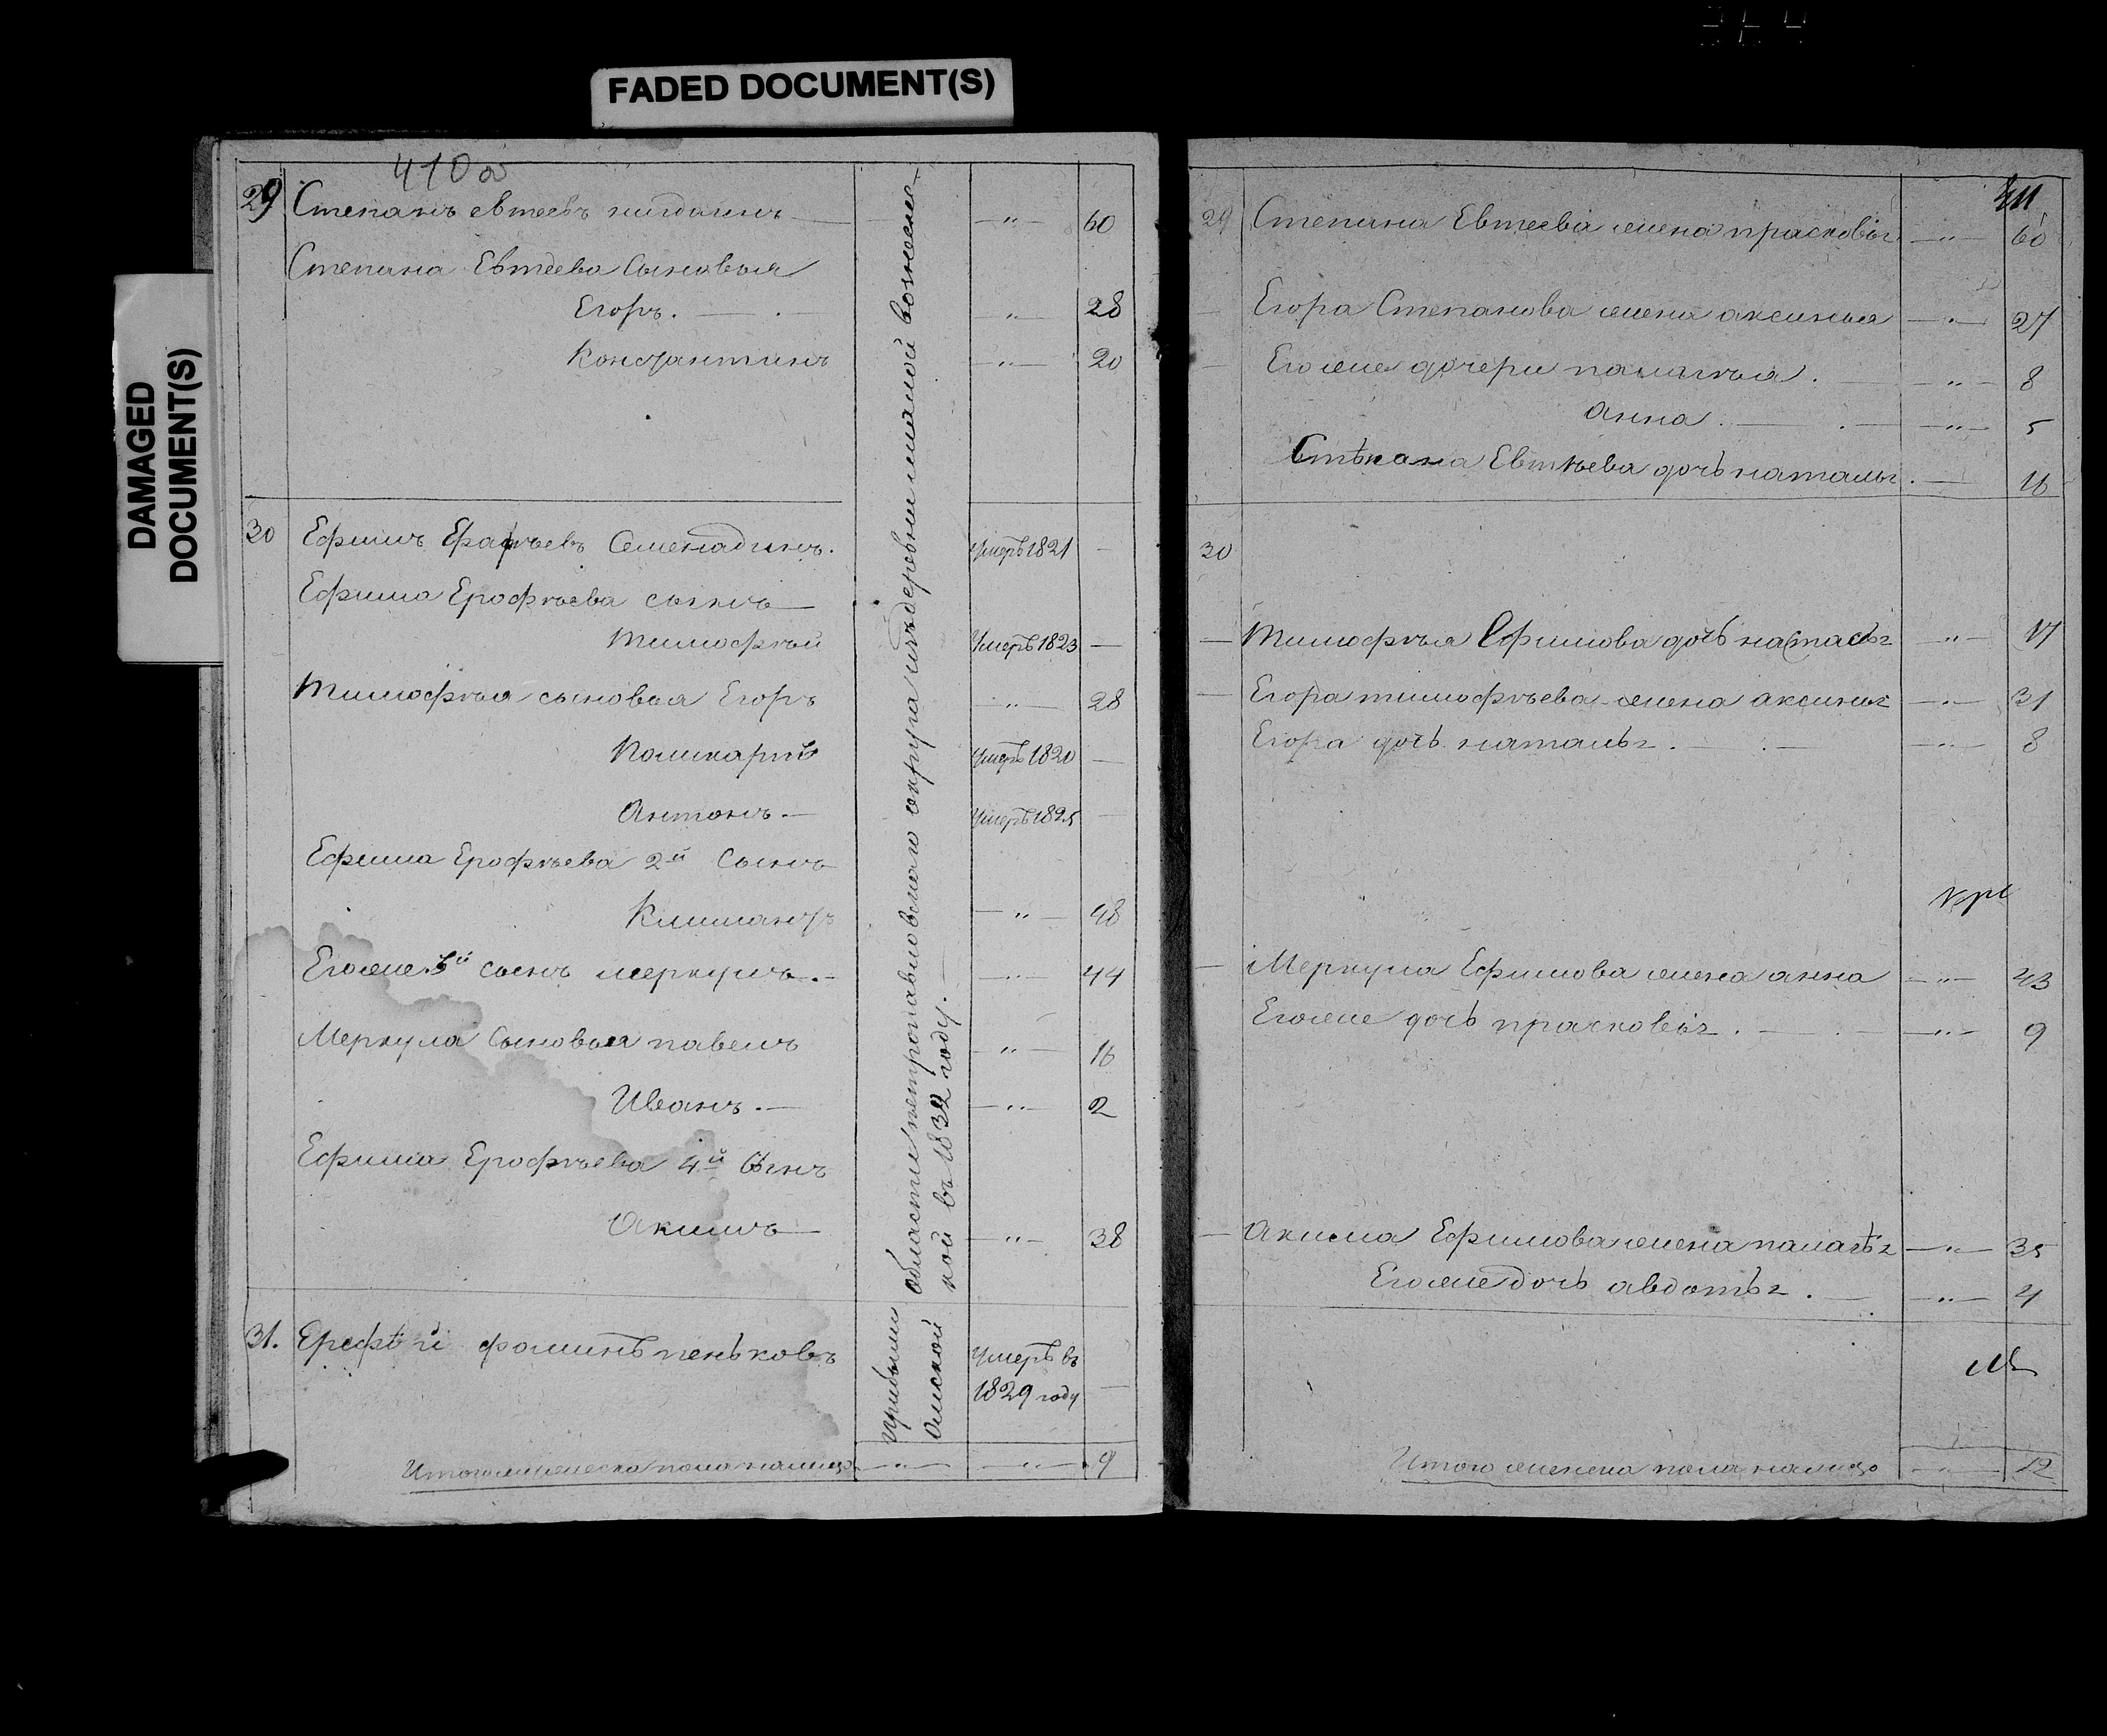 FADED DOCUMENT(S)
DAMAGED
DOCUMENT(S)
410 об
29 Степанъ евтеевъ —"— 60
Степана Евтеева Сыновья
Егоръ. —"— 28
Константинъ —"— 20
30 Ефимъ Ерафѣевъ Семенадинъ. Умеръ 1821 —
Ефима Ерофѣева сынъ
тимофѣй Умеръ 1823 —
тимофѣя сыновья Егоръ —"— 28
Поликарпъ Умеръ 1820 —
Антонъ. — Умеръ 1825 —
Ефима Ерофѣева 2й Сынъ
—"— 48
Егоже 3й сынъ меркулъ. — —"— 44
Меркула Сыновья павелъ —"— 16
Иванъ. — —"— 2
Ефима Ерофѣева 4й Сынъ
Акимъ —"— 38
31. Ерефѣй фоминъ пеньковъ Умеръ въ
1829 году —
Итого мужеска пола налицо —"— —"— 9
прибыли области петропавловскаго округа изъ деревни малой вознесен-
омской кой въ 1832 году.
411
29 Степана Евтеева жена прасковья —"— 60
Егора Степанова жена аксинья —"— 27
Егоже дочери палагѣя. —"— 8
Анна. —"— 5
Стѣпана Евтѣева дочь наталья. — 16
30
— тимофѣя Ефимова дочь настасья —"— 17
— Егора тимофѣева жена аксинья —"— 31
Егора дочь наталья. —"— 8
— Меркула Ефимова жена анна —"— 43
Егоже дочь прасковья. —"— 9
— Акима Ефимова жена палагѣя —"— 35
Егоже дочь авдотья. —"— 4
Итого женска пола налицо —"— 12